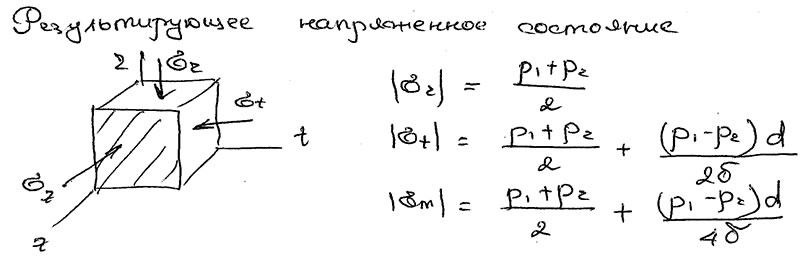 Результирующее напряженное состояние
r σr
|σr| = (p₁+p₂)/2
σt
t
|σt| = (p₁+p₂)/2 + (p₁-p₂)d/2δ
σz
z
|σm| = (p₁+p₂)/2 + (p₁-p₂)d/4δ